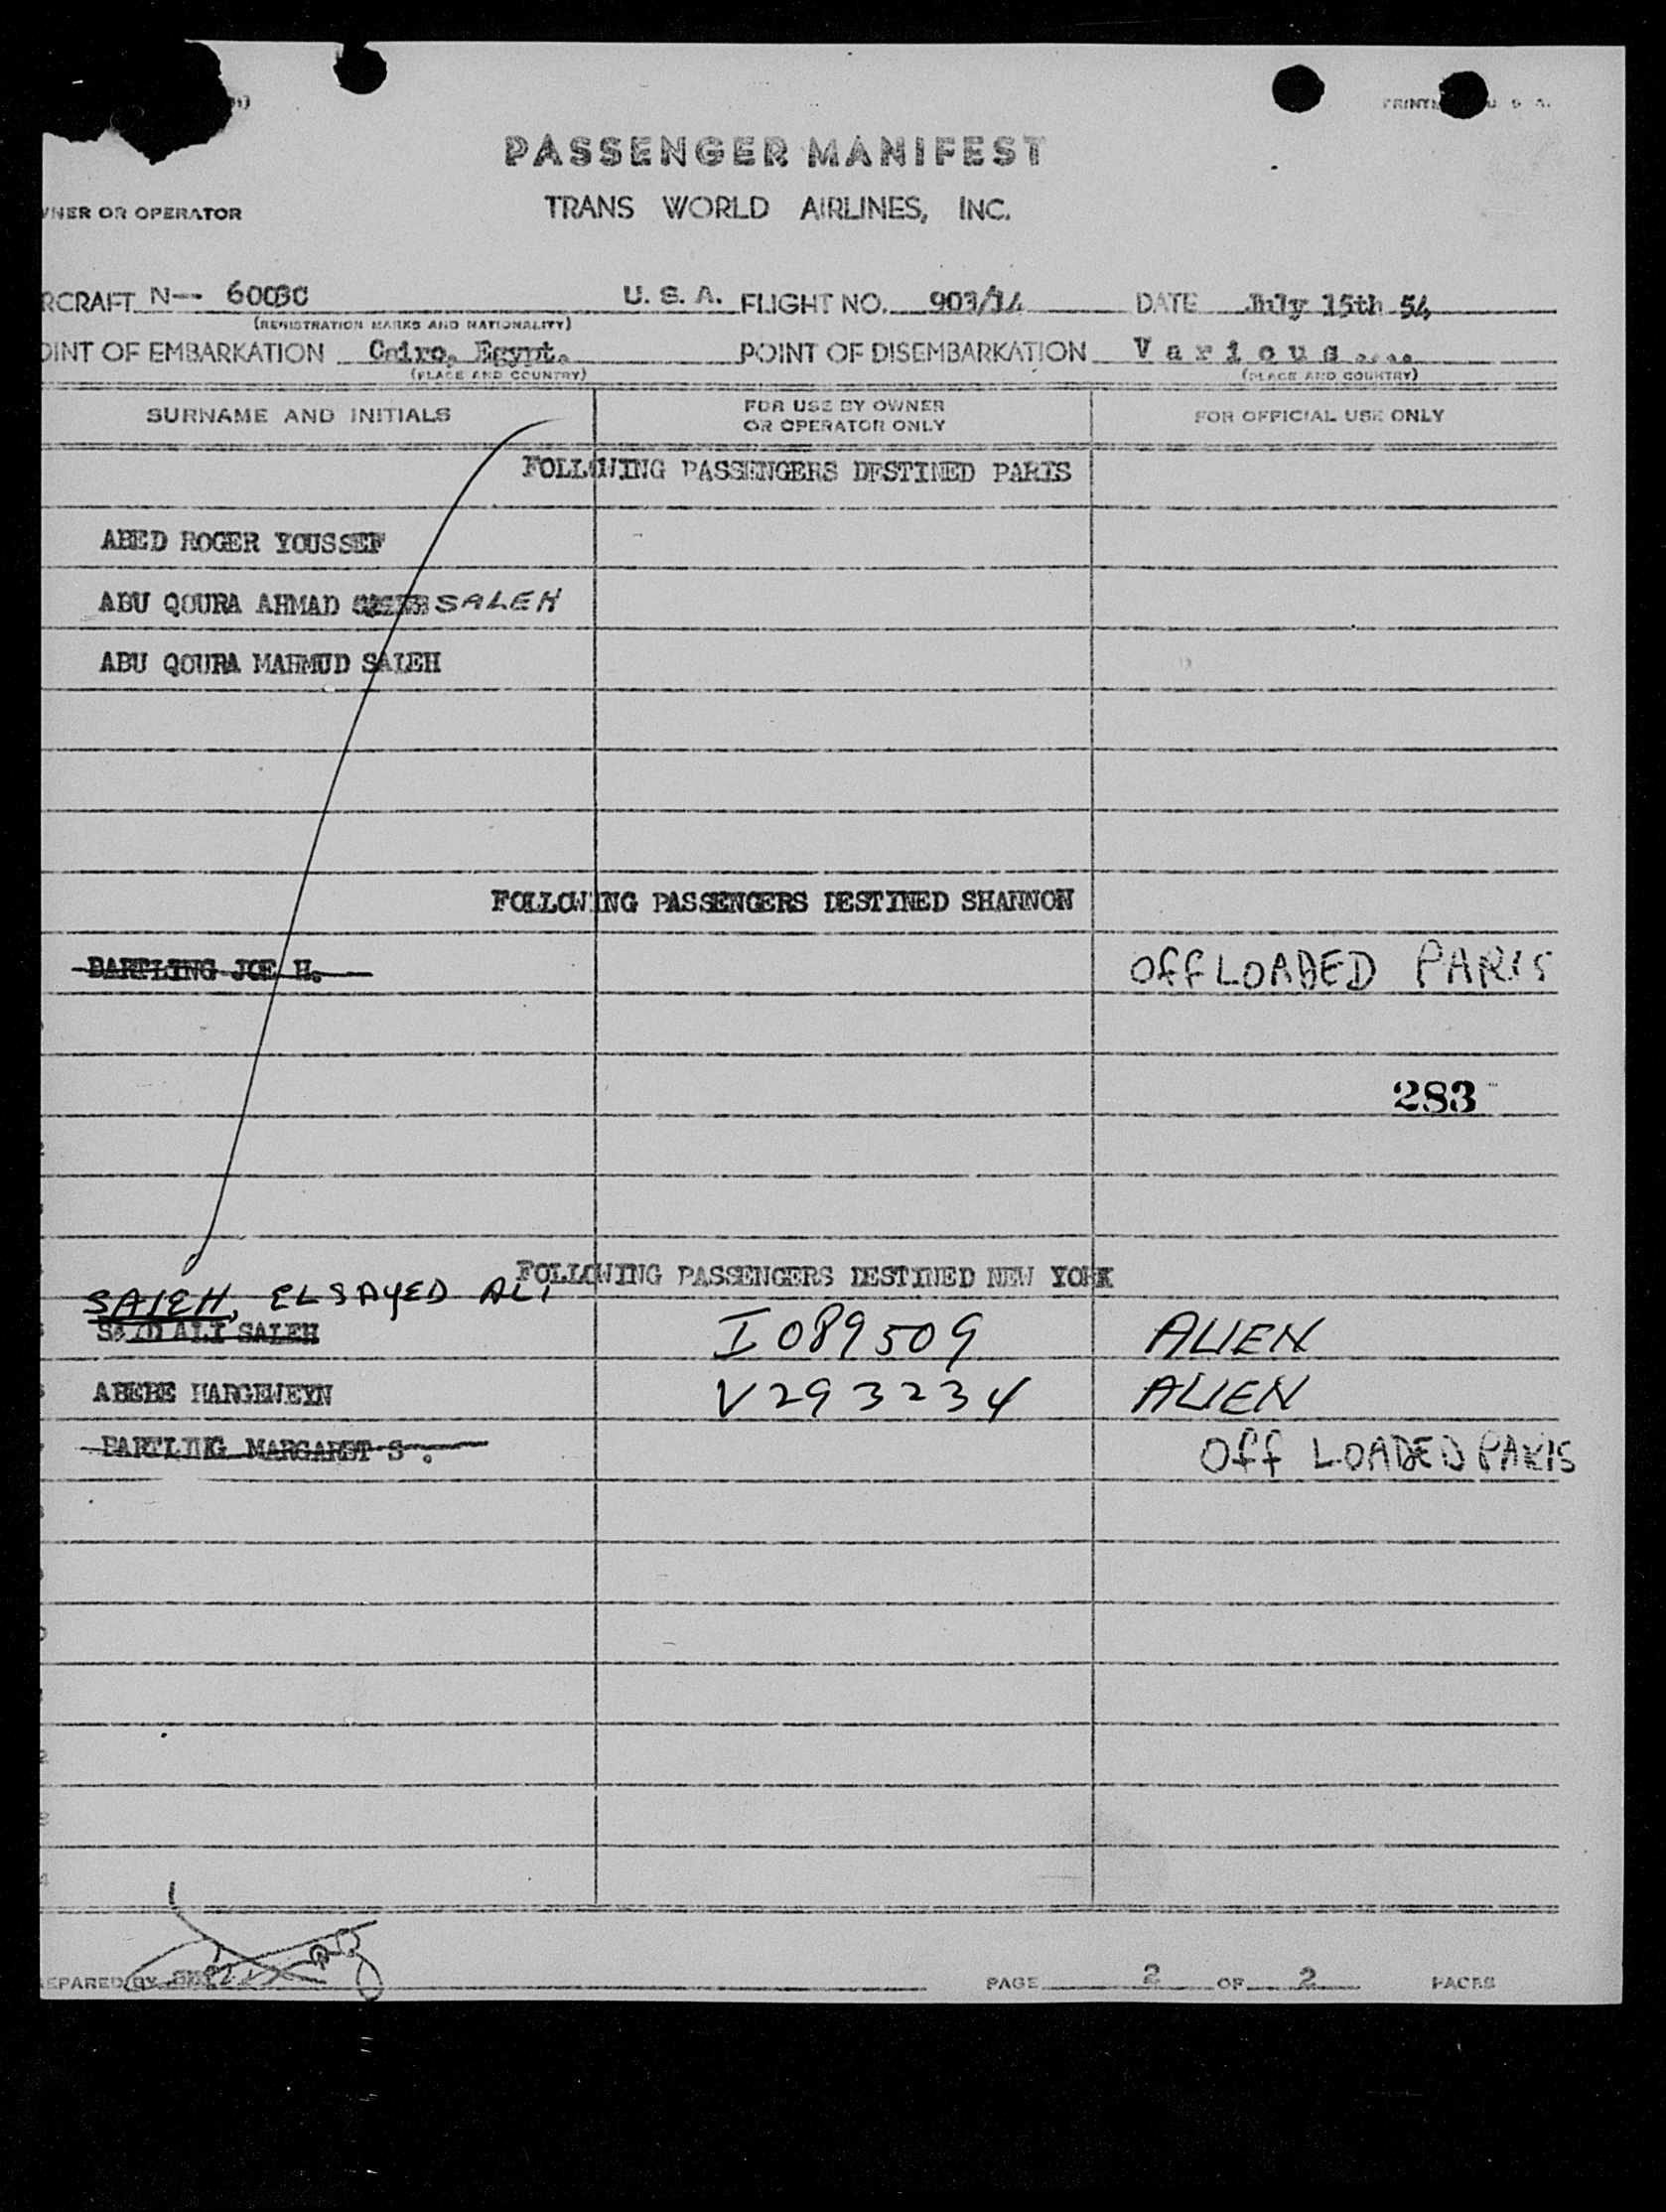 PASSENGER MANIFEST
OWNER OR OPERATOR TRANS WORLD AIRLINES, INC.
AIRCRAFT N-- 6003C U. S. A. FLIGHT NO. 903/14 DATE July 15th 54
(REGISTRATION MARKS AND NATIONALITY)
POINT OF EMBARKATION Cairo, Egypt. POINT OF DISEMBARKATION Various....
(PLACE AND COUNTRY) (PLACE AND COUNTRY)
SURNAME AND INITIALS FOR USE BY OWNER OR OPERATOR ONLY FOR OFFICIAL USE ONLY
FOLLOWING PASSENGERS DESTINED PARIS
ABED ROGER YOUSSEF
ABU QOURA AHMAD SALEH
ABU QOURA MAHMUD SALEH
FOLLOWING PASSENGERS DESTINED SHANNON
BARTLING JOE H. OFF LOADED PARIS
283
FOLLOWING PASSENGERS DESTINED NEW YORK
SALEH, ELSAYED ALI
SAID ALI SALEH I089509 ALIEN
ABEBE V293234 ALIEN
BARTLING MARGARET S. OFF LOADED PARIS
PREPARED BY PAGE 2 OF 2 PAGES